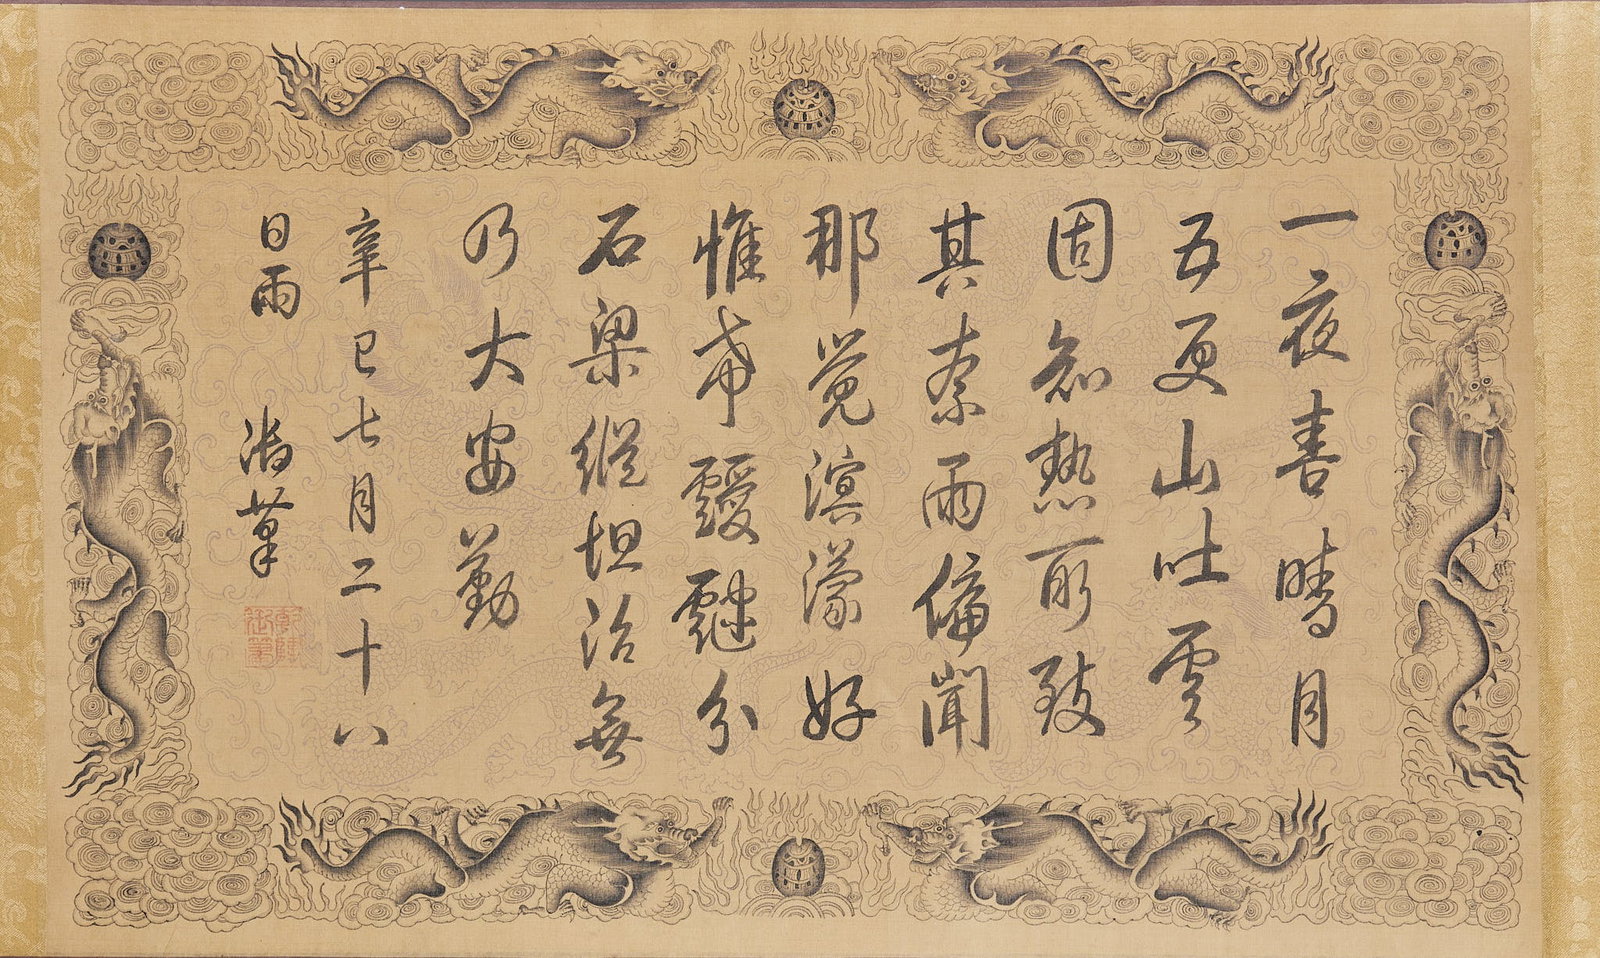 一夜喜晴月
五更山吐雲
固知熱所致
其奈雨偏聞
那覺溟濛好
惟希靉靆分
石梁縱坦治無
乃大安勤
辛巳七月二十八
日雨 御筆
乾隆
御筆